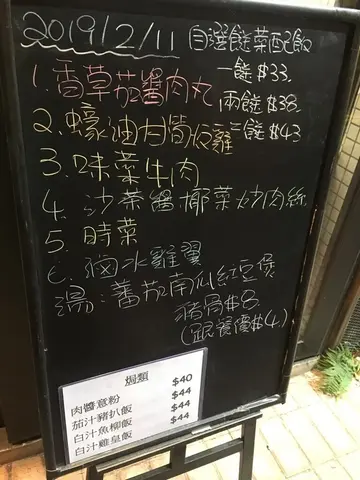 2019/2/11 自選餸菜配飯
一餸$33.
1. 香草茄醬肉丸
兩餸$38.
2. 蠔油甘筍板雞
三餸$43
3. 味菜牛肉
4. 沙茶醬椰菜炒肉絲
5. 時菜
6. 滷水雞翼
湯: 蕃茄南瓜紅豆煲
豬骨$8.
(跟餐價$4.)
焗類 $40
肉醬意粉 $44
茄汁豬扒飯 $44
白汁魚柳飯 $44
白汁雞皇飯